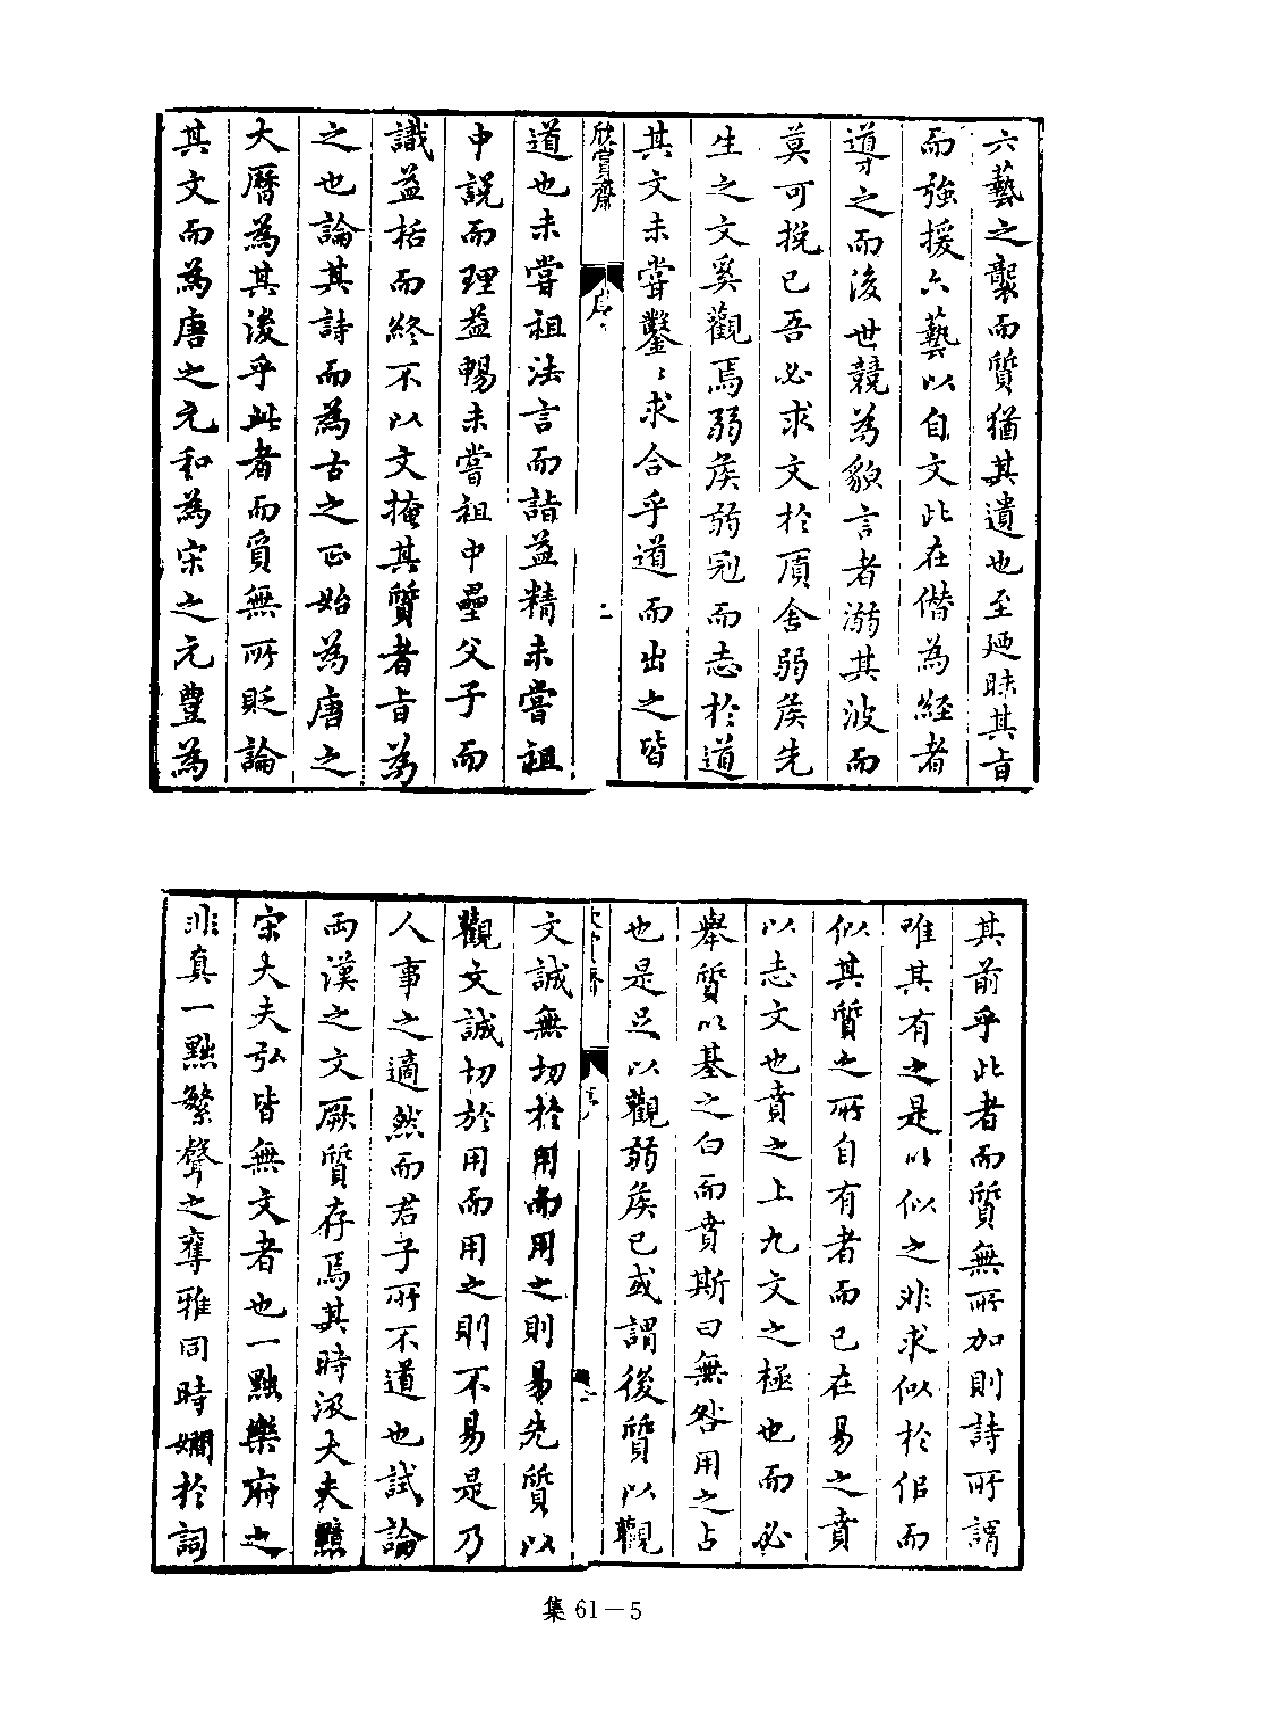 六藝之襲而質猶其遺也至迺昧其旨
而強援六藝以自文此在僭為經者
導之而後世競為貌言者溺其波而
莫可挽已吾必求文於頂舍弱矦先
生之文奚觀焉弱矦弱冠而志於道
其文未嘗鑿〻求合乎道而出之皆
欣賞齋
序
二
道也未嘗祖法言而詣益精未嘗祖
中說而理益暢未嘗祖中壘父子而
識益括而終不以文掩其質者旨為
之也論其詩而為古之正始為唐之
大曆為其後乎此者而質無所貶論
其文而為唐之元和為宋之元豐為
其前乎此者而質無所加則詩所謂
唯其有之是以似之非求似於佀而
似其質之所自有者而已在易之賁
以志文也賁之上九文之極也而必
舉質以基之白而賁斯曰無咎用之占
也是足以觀弱矦已或謂後質以觀
欣賞齋
序
文誠無切於用而用之則易先質以
觀文誠切於用而用之則不易是乃
人事之適然而君子所不道也試論
兩漢之文厥質存焉其時汲大夫黯
宋大夫弘皆無文者也一黜樂府之
非真一黜繁聲之奪雅同時嫺於詞
集 61－5